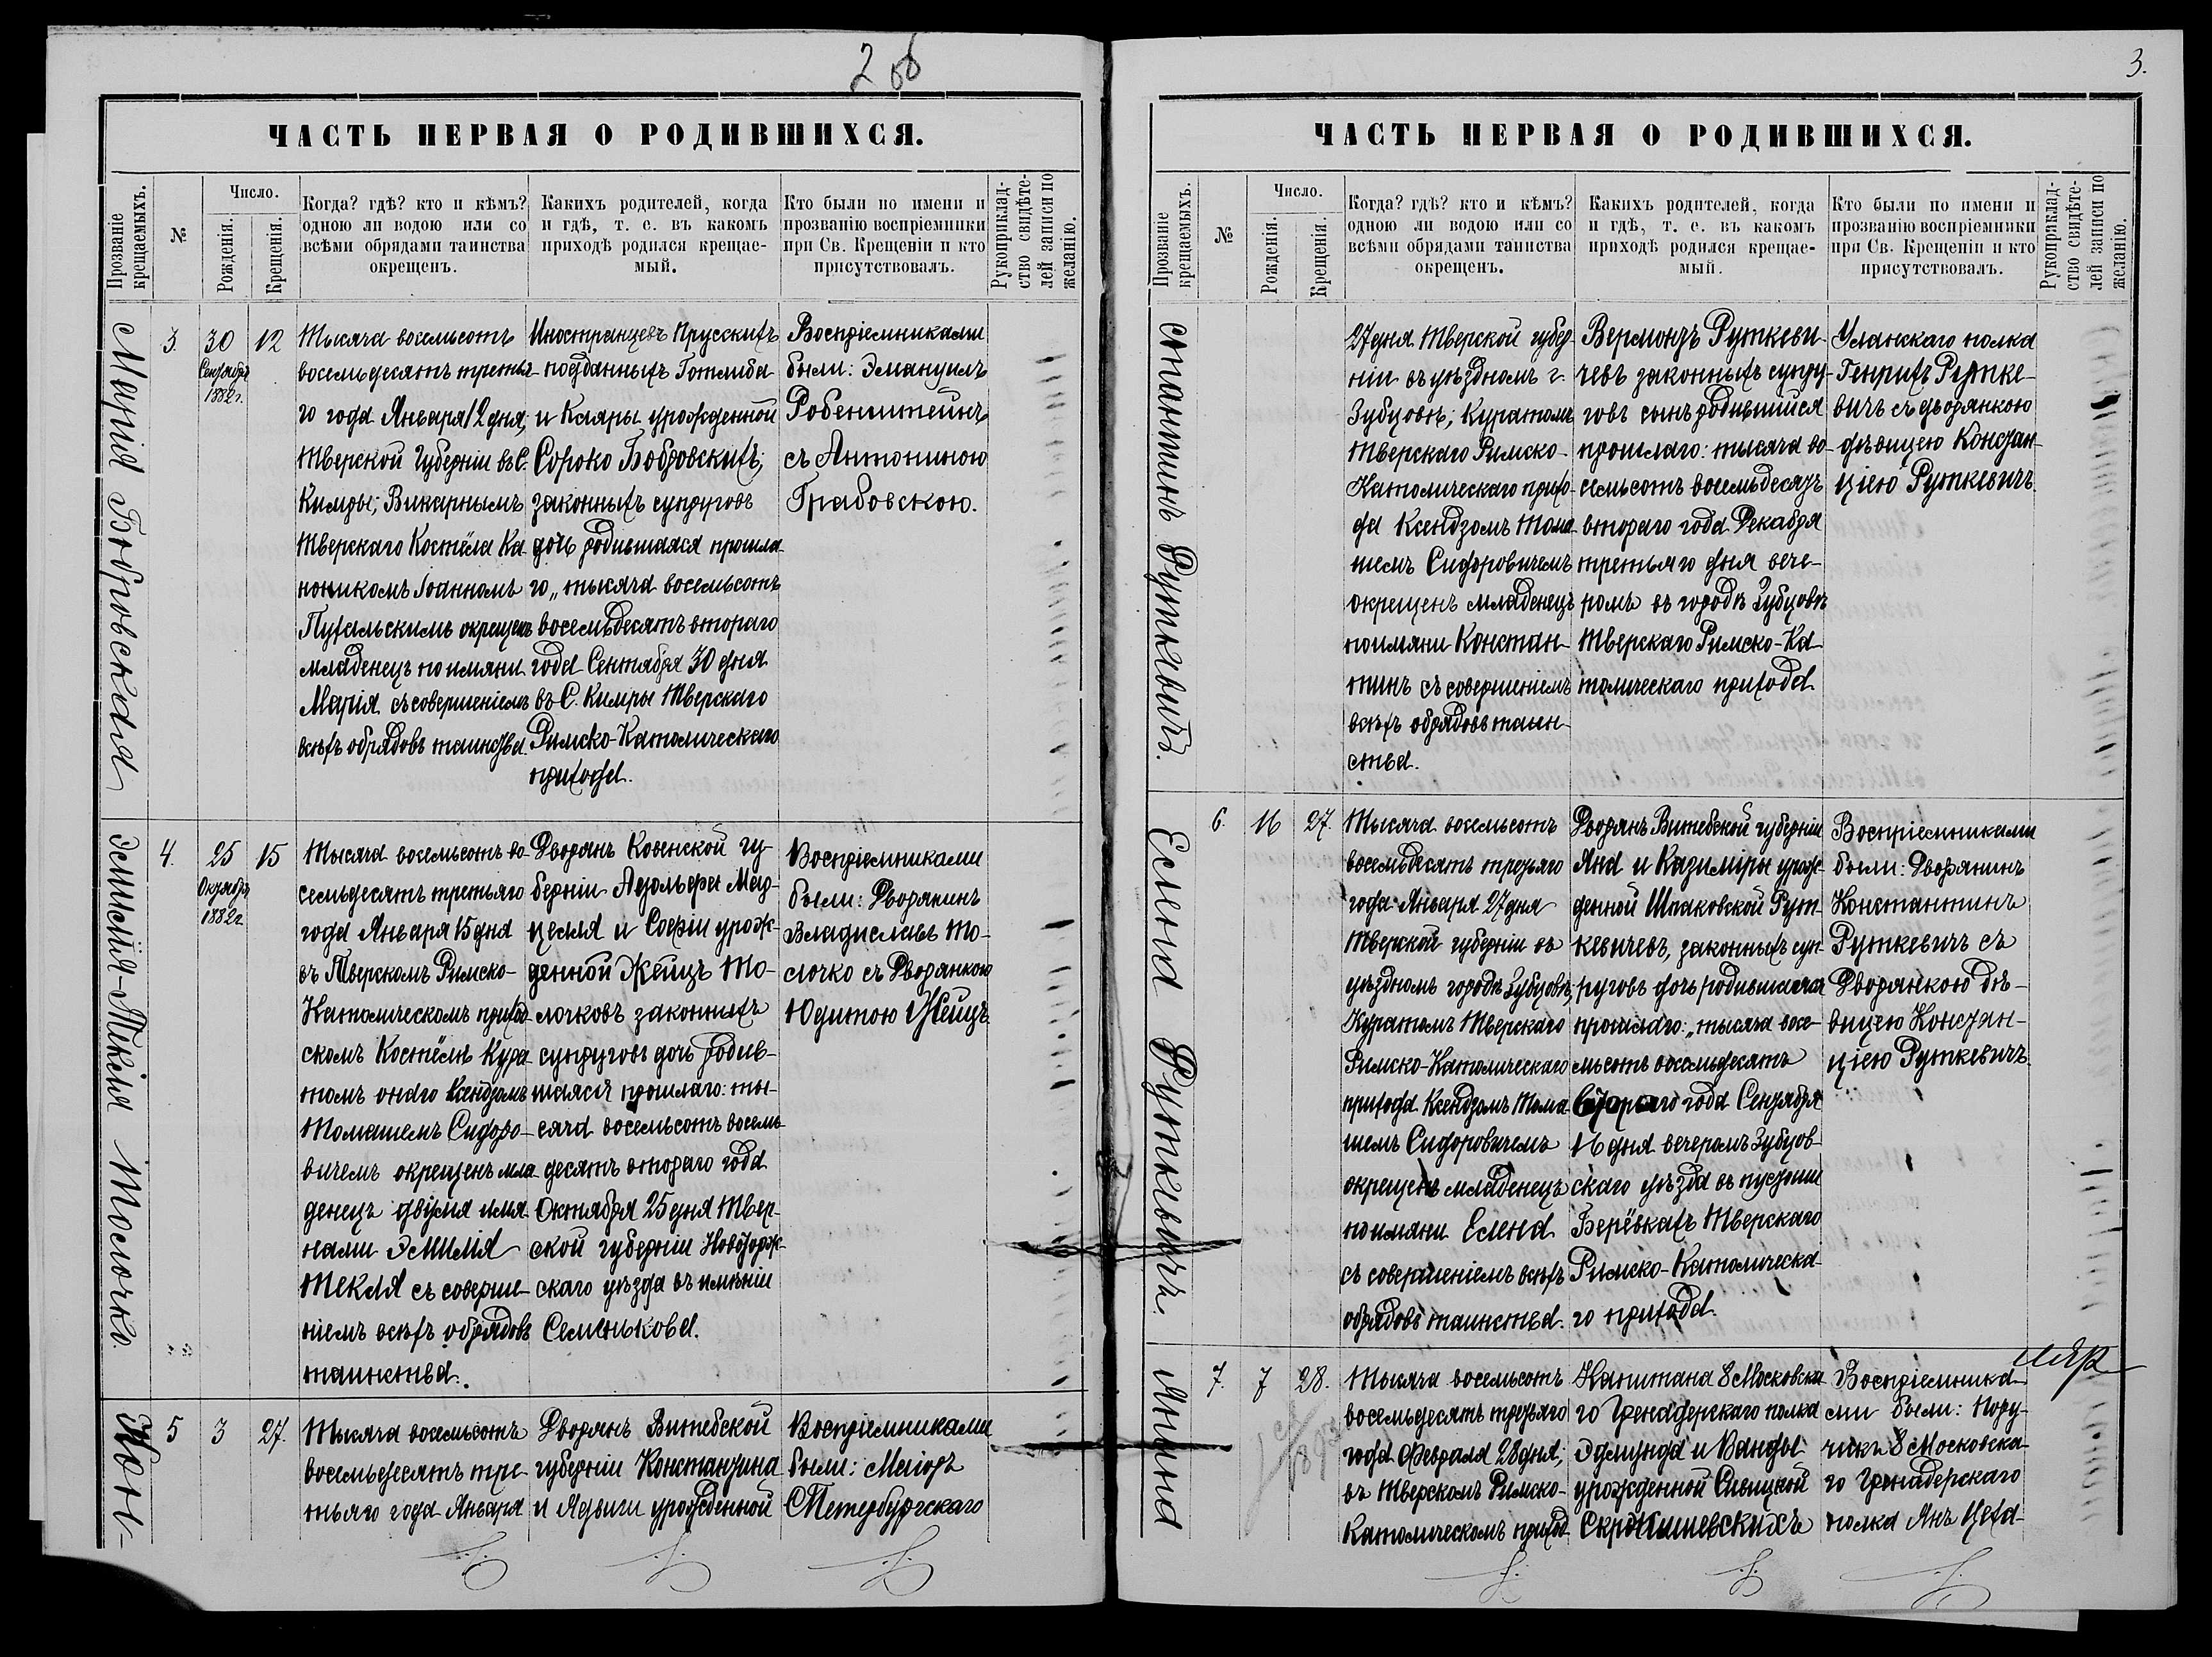 2 об
ЧАСТЬ ПЕРВАЯ О РОДИВШИХСЯ.
Прозваніе крещаемыхъ.
№
Число.
Рожденія.
Крещенія.
Когда? гдѣ? кто и кѣмъ?
одною ли водою или со
всѣми обрядами таинства
окрещенъ.
Какихъ родителей, когда
и гдѣ, т. е. въ какомъ
приходѣ родился крещае-
мый.
Кто были по имени и
прозванію воспріемники
при Св. Крещеніи и кто
присутствовалъ.
Рукоприклад-
ство свидѣте-
лей записи по
желанію.
Марія Бобровская
3.
30
Сентября
1882 г.
12
Тысяча восемьсотъ
восемьдесятъ третья-
го года Января 12 дня,
Тверской Губерніи въ С.
Кимры; Викарнымъ
Тверскаго Костёла Ка-
ноникомъ Іоанномъ
окрещенъ
младенецъ по имяни
Марія съ совершеніемъ
всѣхъ обрядовъ таинства.
Иностранцевъ Прусскихъ
подданныхъ Готлиба
и Клары урожденной
Сороко Бобровскихъ;
законныхъ супруговъ
дочь родившаяся прошла-
го „тысяча восемьсотъ
восемьдесятъ втораго
года Сентября 30 дня
въ С. Кимры Тверскаго
Римско-Католическаго
прихода.
Воспріемниками
были: Эмануилъ
Робенштейнъ
съ Антониною
Грабовскою.
Эмилія-Текля Толочко.
4.
25
Октября
1882 г.
15
Тысяча восемьсотъ во-
семьдесятъ третьяго
года Января 15 дня
въ Тверскомъ Римско-
Католическомъ приход-
скомъ Костёлѣ Кура-
томъ онаго Ксендзомъ
Томашемъ Сидоро-
вичемъ окрещенъ мла-
денецъ двумя имя-
нами Эмилія
Текля съ соверше-
ніемъ всѣхъ обрядовъ
таинства.
Дворянъ Ковенской гу-
берніи Адольфа Мар-
целля и Софіи урож-
денной Жейцъ То-
лочковъ законныхъ
супруговъ дочь родив-
шаяся прошлаго: ты-
сяча восемьсотъ восемь-
десятъ втораго года
Октября 25 дня Твер-
ской губерніи Новоторж-
скаго уѣзда въ имѣніи
Семенькова.
Воспріемниками
были: Дворянинъ
Владиславъ То-
лочко съ Дворянкою
Юдитою Жейцъ.
Кон-
5
3
27.
Тысяча восемьсотъ
восемьдесятъ тре-
тьяго года Января
Дворянъ Витебской
губерніи Константина
и Ядвиги урожденной
Воспріемниками
были: Маіоръ
СПетербургскаго
3.
ЧАСТЬ ПЕРВАЯ О РОДИВШИХСЯ.
Прозваніе крещаемыхъ.
№
Число.
Рожденія.
Крещенія.
Когда? гдѣ? кто и кѣмъ?
одною ли водою или со
всѣми обрядами таинства
окрещенъ.
Какихъ родителей, когда
и гдѣ, т. е. въ какомъ
приходѣ родился крещае-
мый.
Кто были по имени и
прозванію воспріемники
при Св. Крещеніи и кто
присутствовалъ.
Рукоприклад-
ство свидѣте-
лей записи по
желанію.
стантинъ Руткевичъ.
27 дня Тверской губер-
ніи въ уѣздномъ г.
Зубцовѣ; Куратомъ
Тверскаго Римско-
Католическаго прихо-
да Ксендзомъ Тома-
шемъ Сидоровичемъ
окрещенъ младенецъ
по имяни Констан-
тинъ съ совершеніемъ
всѣхъ обрядовъ таин-
ства.
Вермондъ Руткеви-
чевъ законныхъ супру-
говъ сынъ родившійся
прошлаго: тысяча во-
семьсотъ восемьдесятъ
втораго года Декабря
третьяго дня вече-
ромъ въ городѣ Зубцовѣ
Тверскаго Римско-Ка-
толическаго прихода
Уланскаго полка
Генрихъ Рутке-
вичъ съ дворянкою
дѣвицею Констан-
ціею Руткевичъ.
Елена Руткевичъ.
6.
16
27.
Тысяча восемьсотъ
восемьдесятъ третьяго
года Января 27 дня
Тверской губерніи въ
уѣздномъ городѣ Зубцовѣ,
Куратомъ Тверскаго
Римско-Католическаго
прихода Ксендзомъ Тома-
шемъ Сидоровичемъ
окрещенъ младенецъ
по имяни Елена
съ совершеніемъ всѣхъ
обрядовъ таинства.
Дворянъ Витебской губерніи
Яна и Казиміры урож-
денной Шпаковской Рут-
кевичевъ, законныхъ суп-
руговъ дочь родившаяся
прошлаго: „тысяча восе-
мьсотъ восемьдесятъ
втораго года Сентября
16 дня вечеромъ Зубцов-
скаго уѣзда въ пустоши
Берёвкахъ Тверскаго
Римско-Католическа-
го прихода.
Воспріемниками
были: Дворянинъ
Константинъ
Руткевичъ съ
Дворянкою дѣ-
вицею Констан-
ціею Руткевичъ.
Янина
7.
7
28.
Тысяча восемьсотъ
восемьдесятъ третьяго
года Февраля 28 дня;
въ Тверскомъ Римско-
Католическомъ приход-
Капитана 8 Московска-
го Гренадерскаго полка
Эдмунда и Ванды
урожденной Сѣвицкой
Воспріемника-
ми были: Пору-
чикъ 8 Московска-
го Гренадерскаго
полка Янъ Цеха-